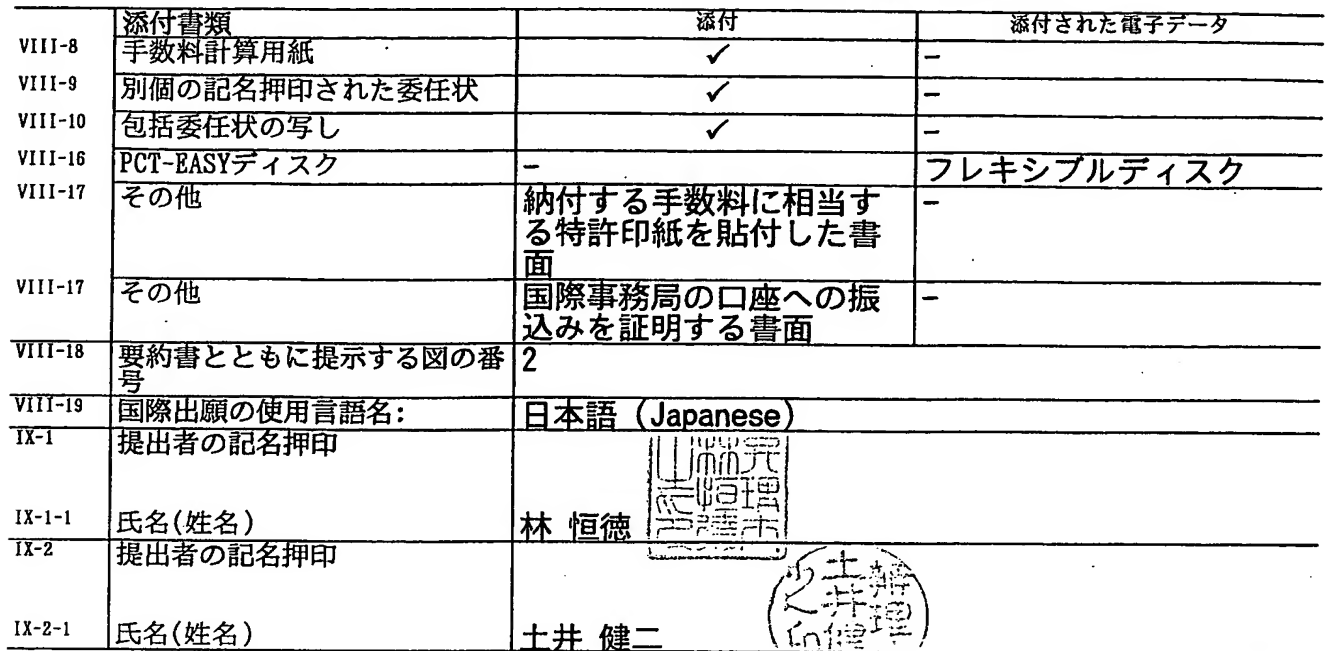 添付書類 添付 添付された電子データ
VIII-8 手数料計算用紙 ✓ −
VIII-9 別個の記名押印された委任状 ✓ −
VIII-10 包括委任状の写し ✓ −
VIII-16 PCT-EASYディスク − フレキシブルディスク
VIII-17 その他 納付する手数料に相当す −
る特許印紙を貼付した書
面
VIII-17 その他 国際事務局の口座への振 −
込みを証明する書面
VIII-18 要約書とともに提示する図の番 2
号
VIII-19 国際出願の使用言語名: 日本語 (Japanese)
IX-1 提出者の記名押印
IX-1-1 氏名(姓名) 林 恒徳
IX-2 提出者の記名押印
IX-2-1 氏名(姓名) 土井 健二